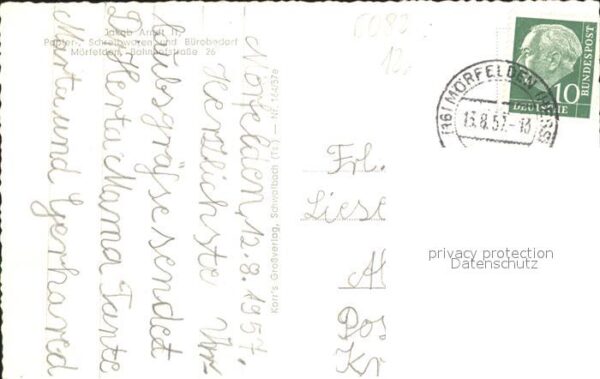 Jakob Arndt II,
Papier-, Schreibwaren und Bürobedarf
Mörfelden, Bahnhofstraße 26
Mörfelden, 12.8.1957.
Herzlichste Ur-
laubsgrüße sendet
Dir Herta Mama Tante
Marta und Gerhared
Karr's Großverlag, Schwalbach (Ts.) — Nr. 164/57e
10
DEUTSCHE
BUNDESPOST
(16) MÖRFELDEN
13.8.57.-18
Frl.
Liese
Al
Pos
Kr
privacy protection
Datenschutz